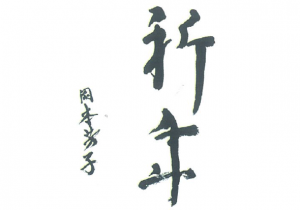 祈年
岡本芳子